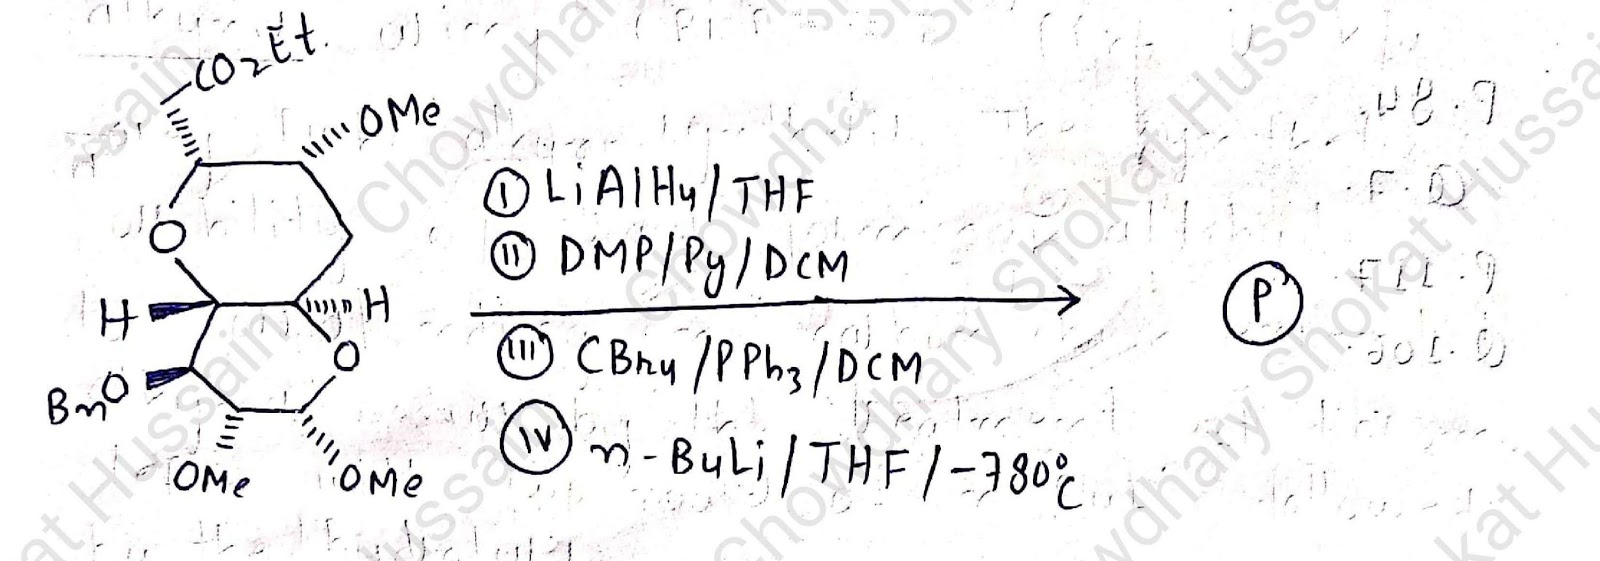 CO2Et.
OMe
O
H
H
O
BnO
OMe
OMe
① LiAlH4/THF
② DMP/Py/DCM
③ CBr4/PPh3/DCM
④ n-BuLi/THF/-780°C
P
Chowdhary Shokat Hussain